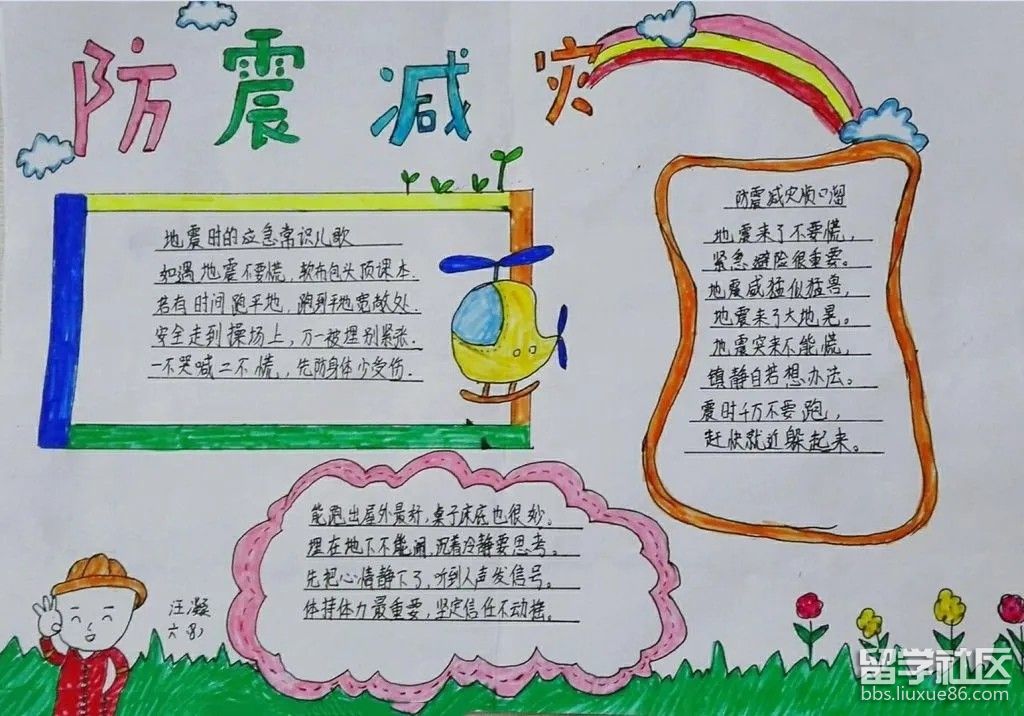 防震减灾
地震时的应急常识儿歌
如遇地震不要慌,软布包头顶课本.
若有时间跑平地,跑到平地宽敞处.
安全走到操场上,万一被埋别紧张.
一不哭喊二不慌,先防身体少受伤.
防震减灾顺口溜
地震来了不要慌,
紧急避险很重要。
地震威猛似猛兽,
地震来了大地晃。
地震突来不能慌,
镇静自若想办法。
震时千万不要跑,
赶快就近躲起来。
能跑出屋外最好,桌子床底也很妙。
埋在地下不能闹,沉着冷静要思考。
先把心情静下了,听到人声发信号。
体持体力最重要,坚定信任不动摇。
汪凝
六(8)
留学社区
bbs.liuxue86.com